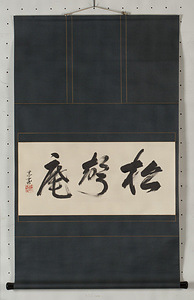 松聲庵